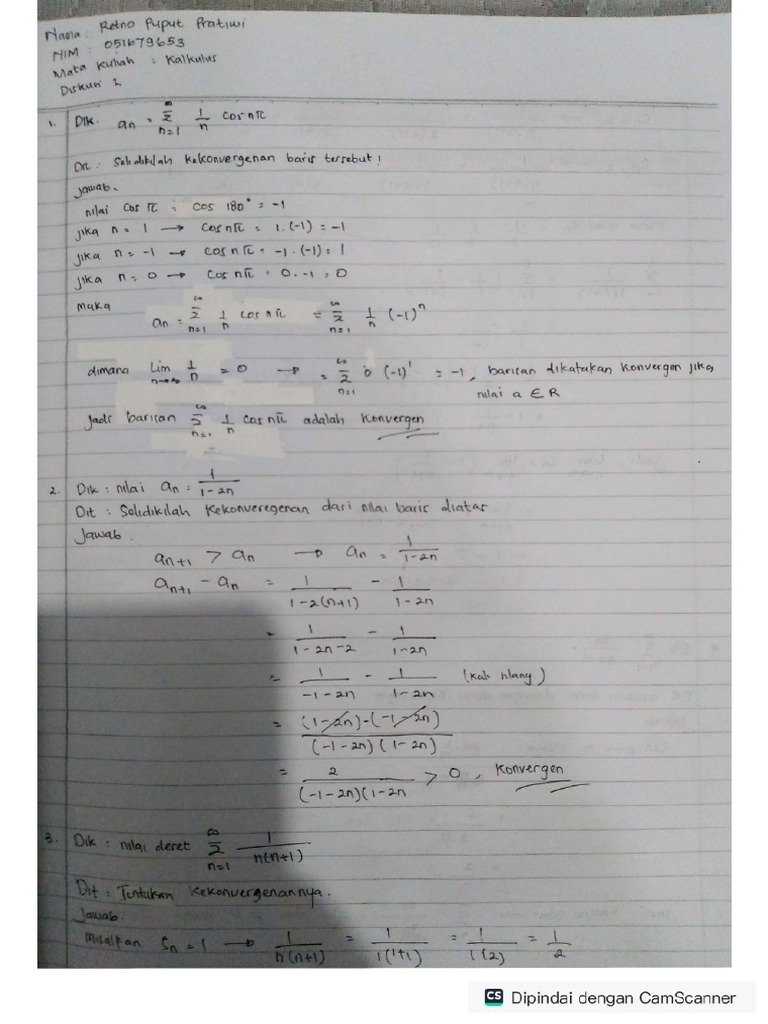 Nama : Retno Puput Pratiwi
NIM : 051679653
Mata Kuliah : Kalkulus
Diskusi 2
1. Dik. an = ∞ Σ n=1 1/n cos nπ
Dit : Selidikilah kekonvergenan baris tersebut!
Jawab.
nilai cos π = cos 180° = -1
jika n = 1 → cos nπ = 1.(-1) = -1
jika n = -1 → cos nπ = -1.(-1) = 1
jika n = 0 → cos nπ = 0.-1 = 0
maka
an = ∞ Σ n=1 1/n cos nπ = ∞ Σ n=1 1/n (-1)^n
dimana Lim n→∞ 1/n = 0 → = ∞ Σ n=1 0 (-1)^1 = -1, barisan dikatakan konvergen jika
nilai a ∈ R
Jadi barisan ∞ Σ n=1 1/n cos nπ adalah konvergen
2. Dik : nilai an = 1/(1-2n)
Dit : Selidikilah kekonveregenan dari nilai baris diatas
Jawab.
an+1 > an → an = 1/(1-2n)
an+1 - an = 1/(1-2(n+1)) - 1/(1-2n)
= 1/(1-2n-2) - 1/(1-2n)
= 1/(-1-2n) - 1/(1-2n) (kali silang)
= ((1-2n)-(-1-2n))/((-1-2n)(1-2n))
= 2/((-1-2n)(1-2n > 0, konvergen
3. Dik : nilai deret ∞ Σ n=1 1/(n(n+1))
Dit : Tentukan kekonvergenannya.
Jawab.
Misalkan Sn = 1 → 1/(n(n+1)) = 1/(1(1+1)) = 1/(1(2)) = 1/2
CS Dipindai dengan CamScanner